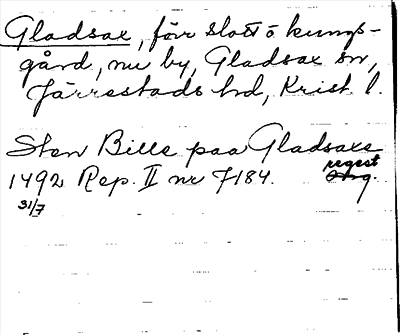 Gladsax, förr slott o kungs-
gård, nu by, Gladsax sn,
Järrestads hd, Krist. l.
Sten Bille paa Gladsaxe
regest
1492 Rep. II nr 7184.
31/7